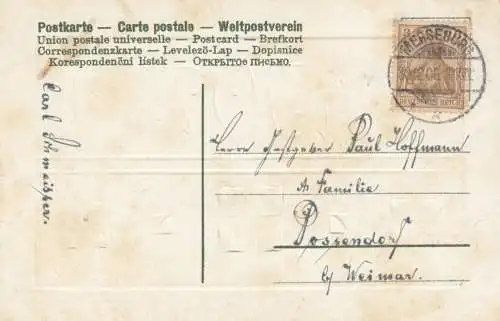 Postkarte — Carte postale — Weltpostverein
Union postale universelle — Postcard — Brefkort
Correspondenzkarte — Levelező-Lap — Dopisnice
Korespondenční lístek — Открытое письмо.
DEUTSCHES REICH
Carl Schmeisser.
Herrn Gastgeber Paul Hoffmann
& Familie
Possendorf
b/ Weimar.